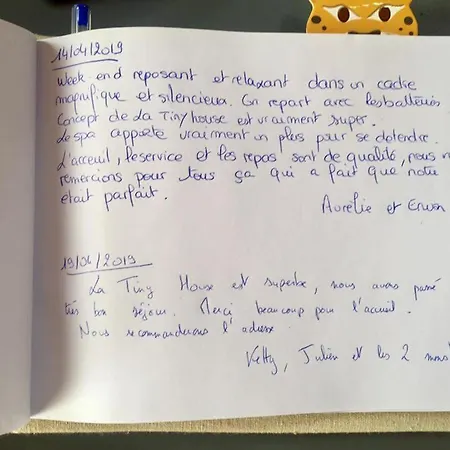 14/04/2019
Week-end reposant et relaxant dans un cadre
magnifique et silencieux. On repart avec les batteries
Concept de la Tiny house est vraiment super.
Le spa apporte vraiment un plus pour se detendre.
L'acceuil, le service et les repas sont de qualité, nous v
remercions pour tous ça qui a fait que notre
etait parfait.
Aurélie et Erwan
19/04/2019
La Tiny House est superbe, nous avons passé
très bon séjour. Merci beaucoup pour l'accueil.
Nous recommanderons l'adresse
Ketty, Julien et les 2 mons